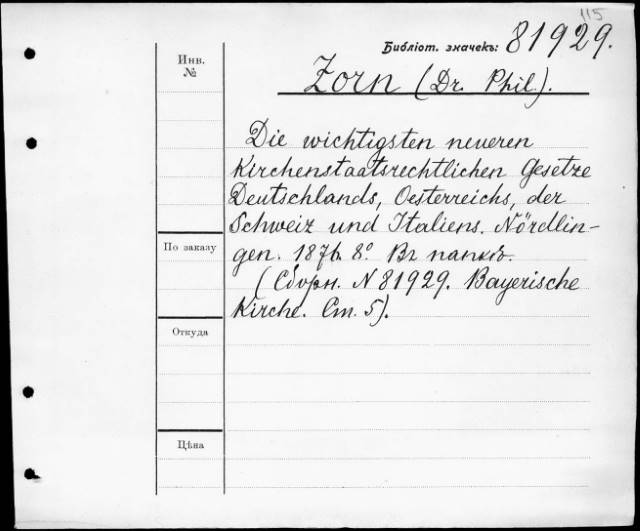 115
Библіот. значекъ: 81929.
Инв.
№
Zorn (Dr. Phil.).
Die wichtigsten neueren
Kirchenstaatsrechtlichen Gesetze
Deutschlands, Oesterreichs, der
Schweiz und Italiens. Nördlin-
gen. 1876. 8.° Въ папкѣ.
(Сборн. N 81929. Bayerische
Kirche. Ст. 5).
По заказу
Откуда
Цѣна